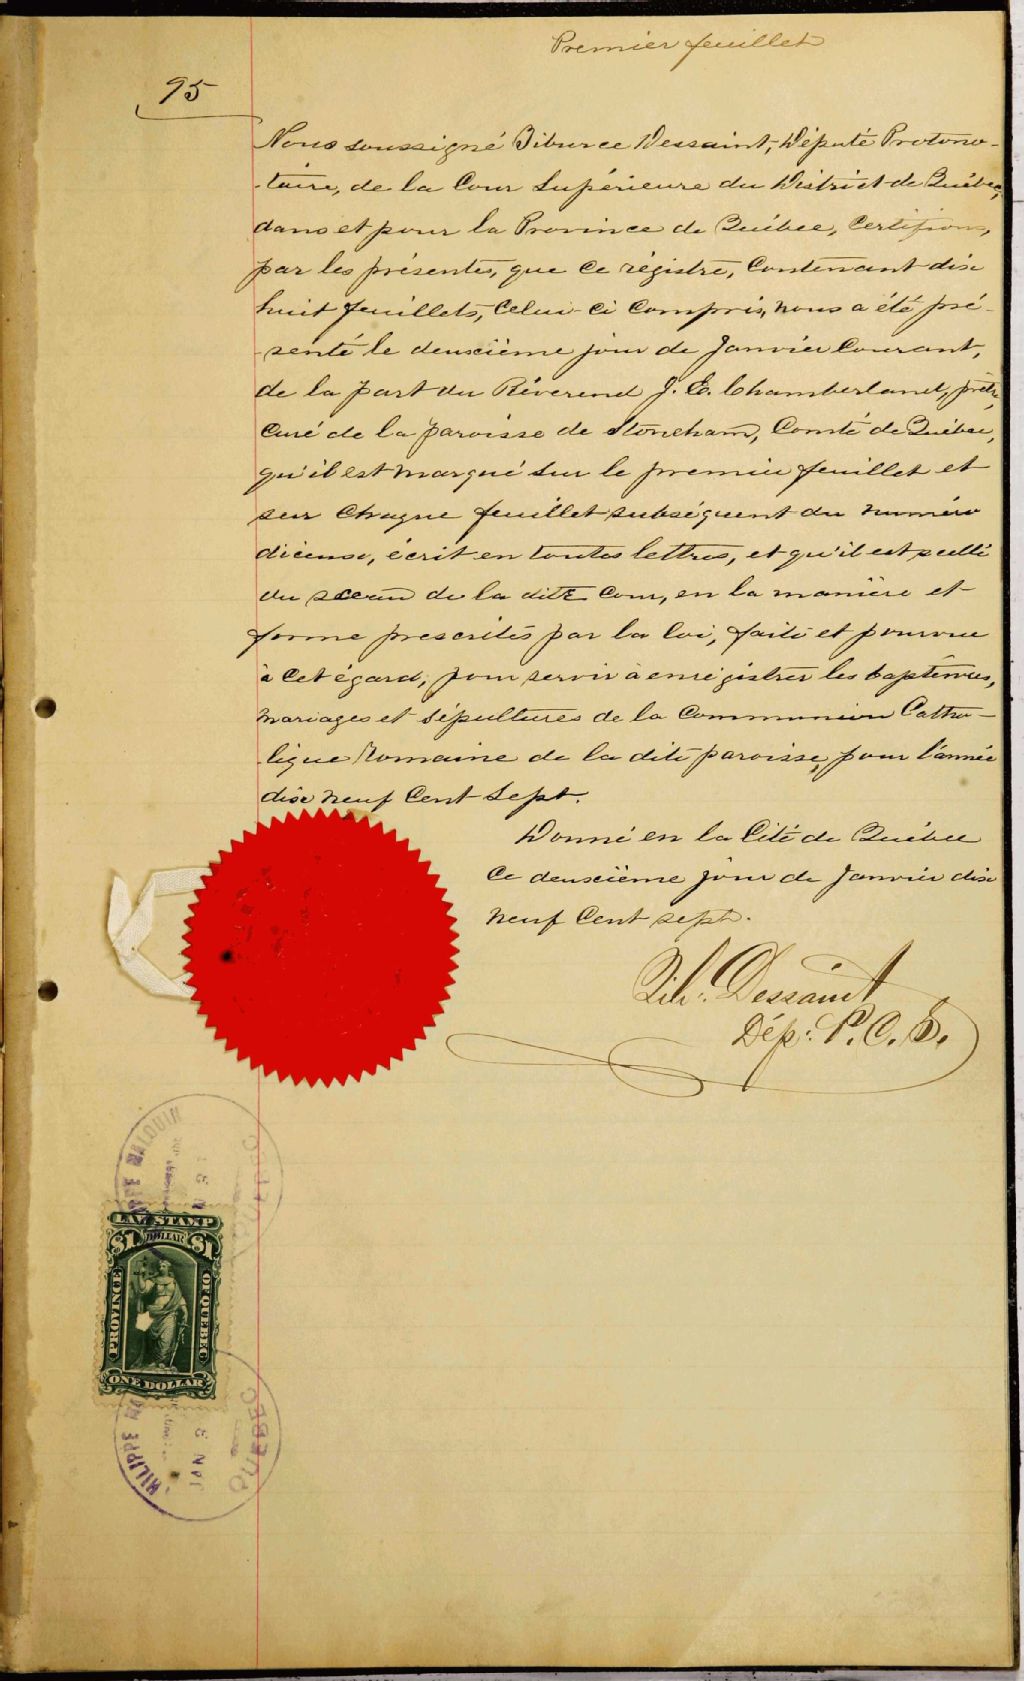 Premier feuillet
95
Nous soussigné Tiburce Dessaint, Député Protono-
-taire, de la Cour Supérieure du District de Québec,
dans et pour la Province de Québec, Certifions,
par les présentes, que ce régistre, contenant dix
huit feuillets, celui-ci compris, nous a été pré-
-senté le deuxième jour de Janvier Courant,
de la part du Réverend J. E. Chamberland, prêtre,
Curé de la paroisse de Stoneham, Comté de Québec,
qu'il est marqué sur le premier feuillet et
sur chaque feuillet subséquent du numéro
, écrit en toutes lettres, et qu'il est scellé
du sceau de la dite Cour, en la manière et
forme prescrites par la loi, faite et pourvue
à cet égard, pour servir à enrégistrer les baptêmes,
mariages et sépultures de la Communion Catho-
-lique Romaine de la dite paroisse, pour l'année
dix neuf Cent Sept.
Donné en la Cité de Québec
Ce deuxième jour de Janvier dix
neuf Cent sept.
Tib: Dessaint
Dép: P. C. S.
MALOUIN
QUEBEC
LAW STAMP
$1 DOLLAR $1
PROVINCE OF QUEBEC
ONE DOLLAR
HILIPPE MA
JAN 3
QUEBEC